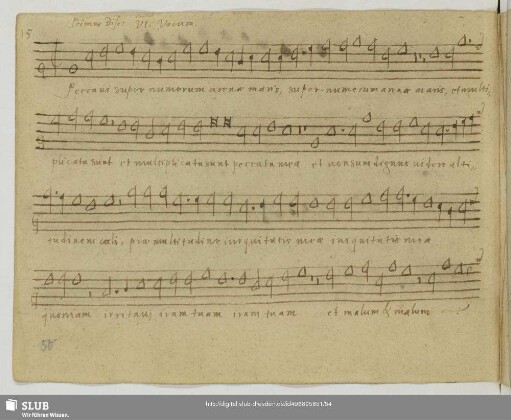 15
Primus Disc. VI. Vocum.
Peccavi super numerum arenæ maris, super numerum arenæ maris, et multi,
plicata sunt et multiplicata sunt peccata mea et non sum dignus videre alti,
tudinem cæli, præ multitudine iniquitatis meæ iniquitatis meæ
quoniam irritavi iram tuam iram tuam et malum & malum
50
SLUB
Wir führen Wissen.
http://digital.slub-dresden.de/id496805851/54